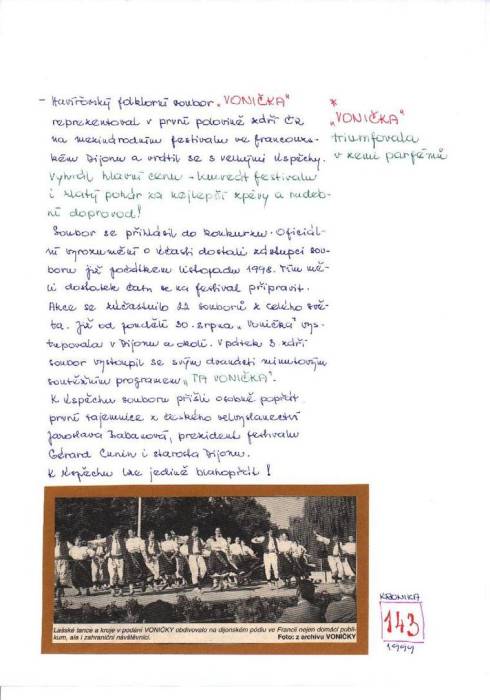 - Havířovský folklorní soubor „VONIČKA"
reprezentoval v první polovině září ČR
na mezinárodním festivalu ve francouzs-
kém Dijonu a vrátil se s velkými úspěchy.
Vyhrál hlavní cenu - kuvrát festivalu
i zlatý pohár za nejlepší zpěvy a hudeb-
ní doprovod!
Soubor se přihlásil do konkurzu. Oficiál-
ní vyrozumění o účasti dostali zástupci sou-
boru již počátkem listopadu 1998. Tím mě-
li dostatek času se na festival připravit.
Akce se zúčastnilo 22 souborů z celého svě-
ta. Již od pondělí 30. srpna „Vonička" vys-
tupovala v Dijonu a okolí. V pátek 3. září
soubor vystoupil se svým dvaceti minutovým
soutěžním programem „TA VONIČKA".
K úspěchu souboru přišli osobně popřát
první tajemnice z českého velvyslanectví
Jaroslava Žabanová, prezident festivalu
Gérard Cunin i starosta Dijonu.
K úspěchu lze jedině blahopřát!
*
„VONIČKA"
triumfovala
v zemi parfémů
Lašské tance a kroje v podání VONIČKY obdivovalo na dijonském pódiu ve Francii nejen domácí publi-
kum, ale i zahraniční návštěvníci. Foto: z archivu VONIČKY
KRONIKA
143
1999